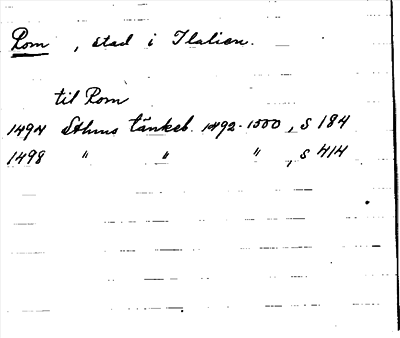 Rom, stad i Italien.
til Rom
1494 Sthms tänkeb. 1492-1500, s 184
1498 " " ", s 414